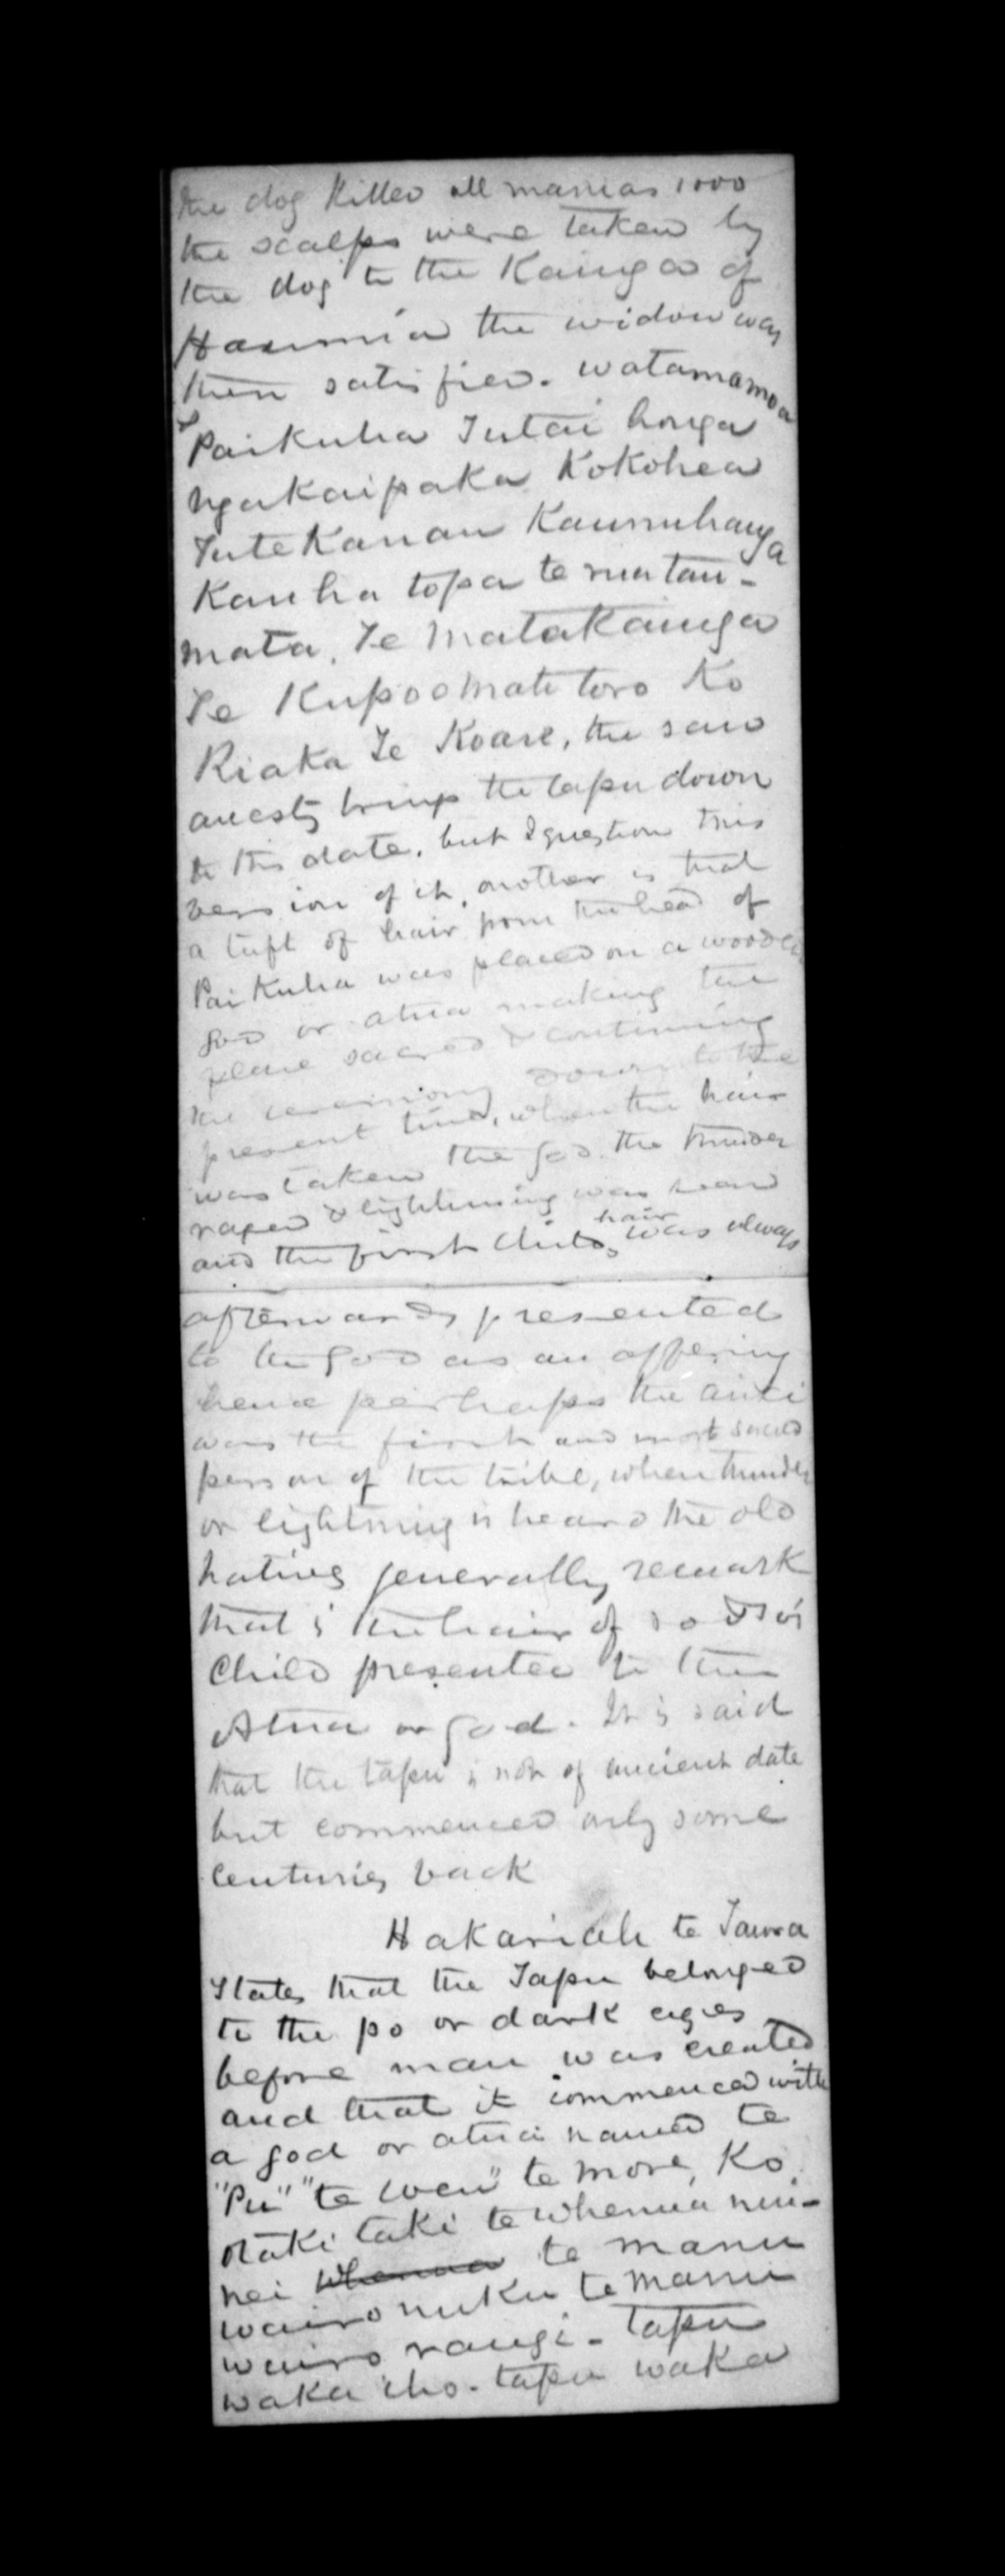 the dog killed all manias 1000
the scalps were taken by
the dog to the Kainga of
Haumia the widow was
then satisfied. watamamoa
Paikuha Tutai honga
ngakaipaka Kokohea
Tutekanau Kaumuhanga
Kauha topa te ruatau-
mata, Te Matakainga
Te Kupoomate toro Ko
Riaka Te Koare, the said
ancesty brings the tapu down
to this date, but I question this
version of it, another is that
a tuft of hair from the head of
Paikuha was placed on a wooden
god or atua making the
place sacred & continuing
the ceremony down to the
present time, when the hair
was taken the god. the thunder
raged & lightening was heard
and the first childs hair was always
afterwards presented
to the god as an offering
hence perhaps the ariki
was the first and most sacred
person of the tribe, when thunder
or lightning is heard the old
natives generally remark
that is the hair of so & so's
Child presented to the
Atua or god. It is said
that the tapu is not of ancient date
but commenced only some
centuries back
Hakariah te Tawa
States that the Tapu belonged
to the po or dark ages
before man was created
and that it commenced with
a god or atua named te
"Pu" "te weu" te more, Ko
otaki taki te whenua nui-
nei whenua te manu
wairo nuku te manu
wairo rangi - tapu
waka iho - tapu waka